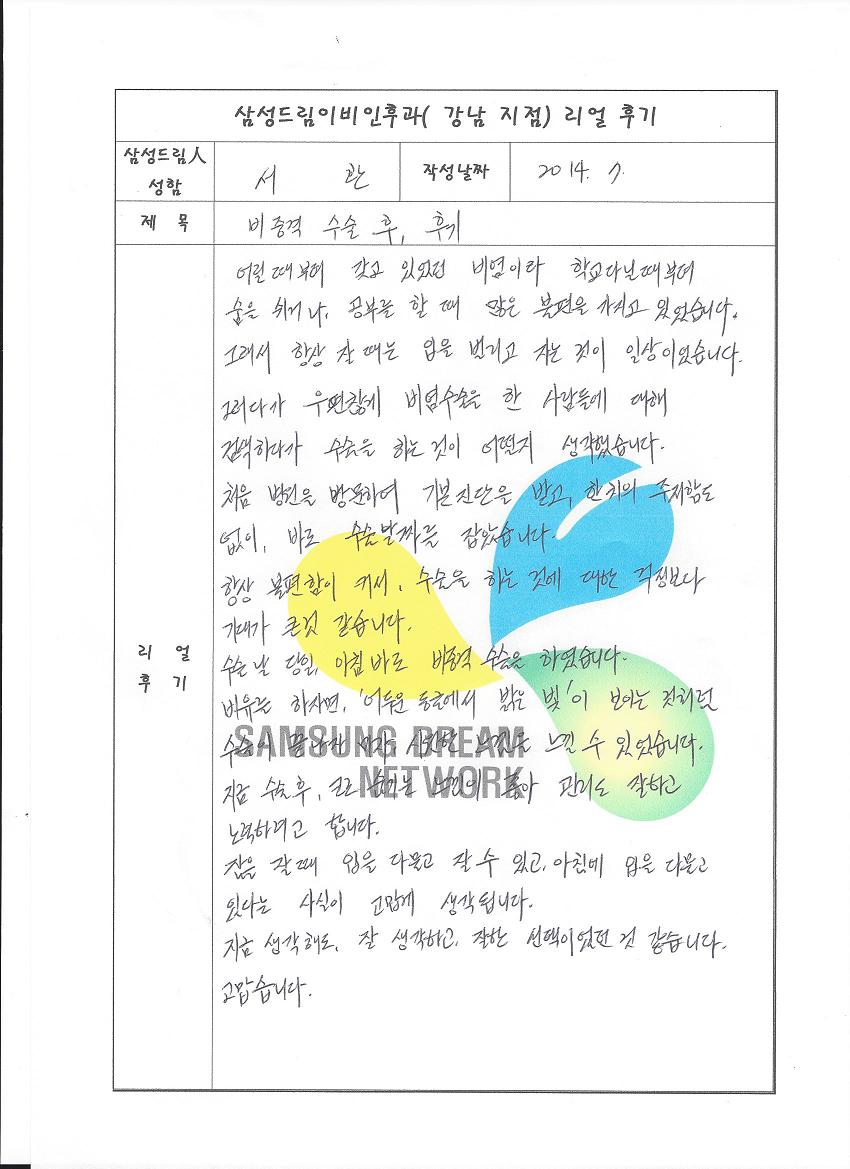 삼성드림이비인후과( 강남 지점) 리얼 후기
삼성드림人
성함
서 관
작성날짜
2014. 7.
제 목
비중격 수술 후, 후기
리 얼
후 기
어릴때부터 갖고 있었던 비염이라 학교다닐때부터
숨을 쉬거나, 공부를 할 때 많은 불편을 가지고 있었습니다.
그래서 항상 잘 때는 입을 벌리고 자는 것이 일상이었습니다.
그러다가 우연찮게 비염수술을 한 사람들에 대해
검색하다가 수술을 하는것이 어떨지 생각했습니다.
처음 병원을 방문하여 기본진단을 받고, 한치의 주저함도
없이, 바로 수술날짜를 잡았습니다.
항상 불편함이 커서, 수술을 하는 것에 대한 걱정보다
기대가 큰것 같습니다.
수술날 당일, 아침바로 비중격 수술을 하였습니다.
비유를 하자면, '어두운 동굴에서 밝은 빛'이 보이는 것처럼
수술이 끝나자 마자, 시원한 느낌을 느낄 수 있었습니다.
지금 수술후, 코로 숨쉬는 느낌이 좋아 관리도 잘하고
노력하려고 합니다.
잠을 잘때 입을 다물고 잘 수 있고, 아침에 입을 다물고
있다는 사실이 고맙게 생각됩니다.
지금 생각해도, 잘 생각하고, 잘한 선택이었던 것 같습니다.
고맙습니다.
SAMSUNG DREAM
NETWORK